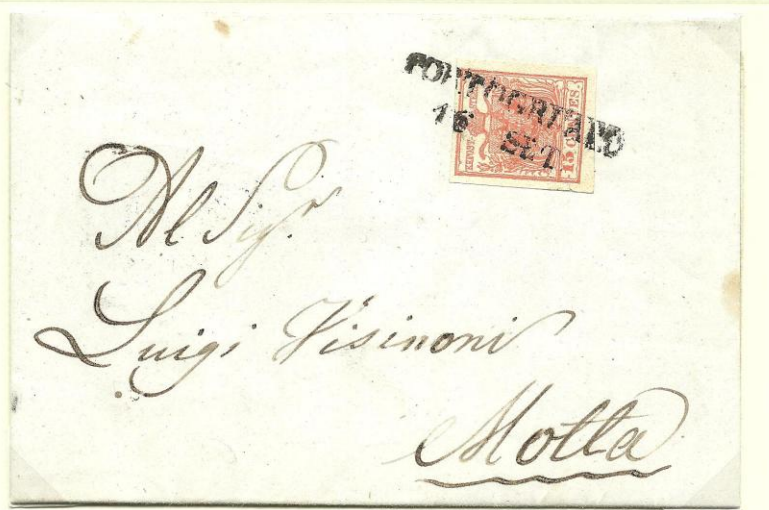 PORTOGRUARO
16 SET
KK.POST-
15 CENTES.
Al Sigr.
Luigi Visinoni
Motta